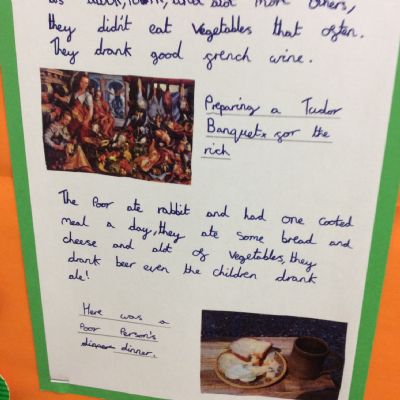 and more others,
they didn't eat vegetables that often.
They drank good grench wine.
Preparing a Tudor
Banquet gor the
rich
The Poor ate rabbit and had one cooted
meal a day, they ate some bread and
cheese and alot of vegetables, they
drank beer even the children drank
ale!
Here was a
Poor Person's
dinner.